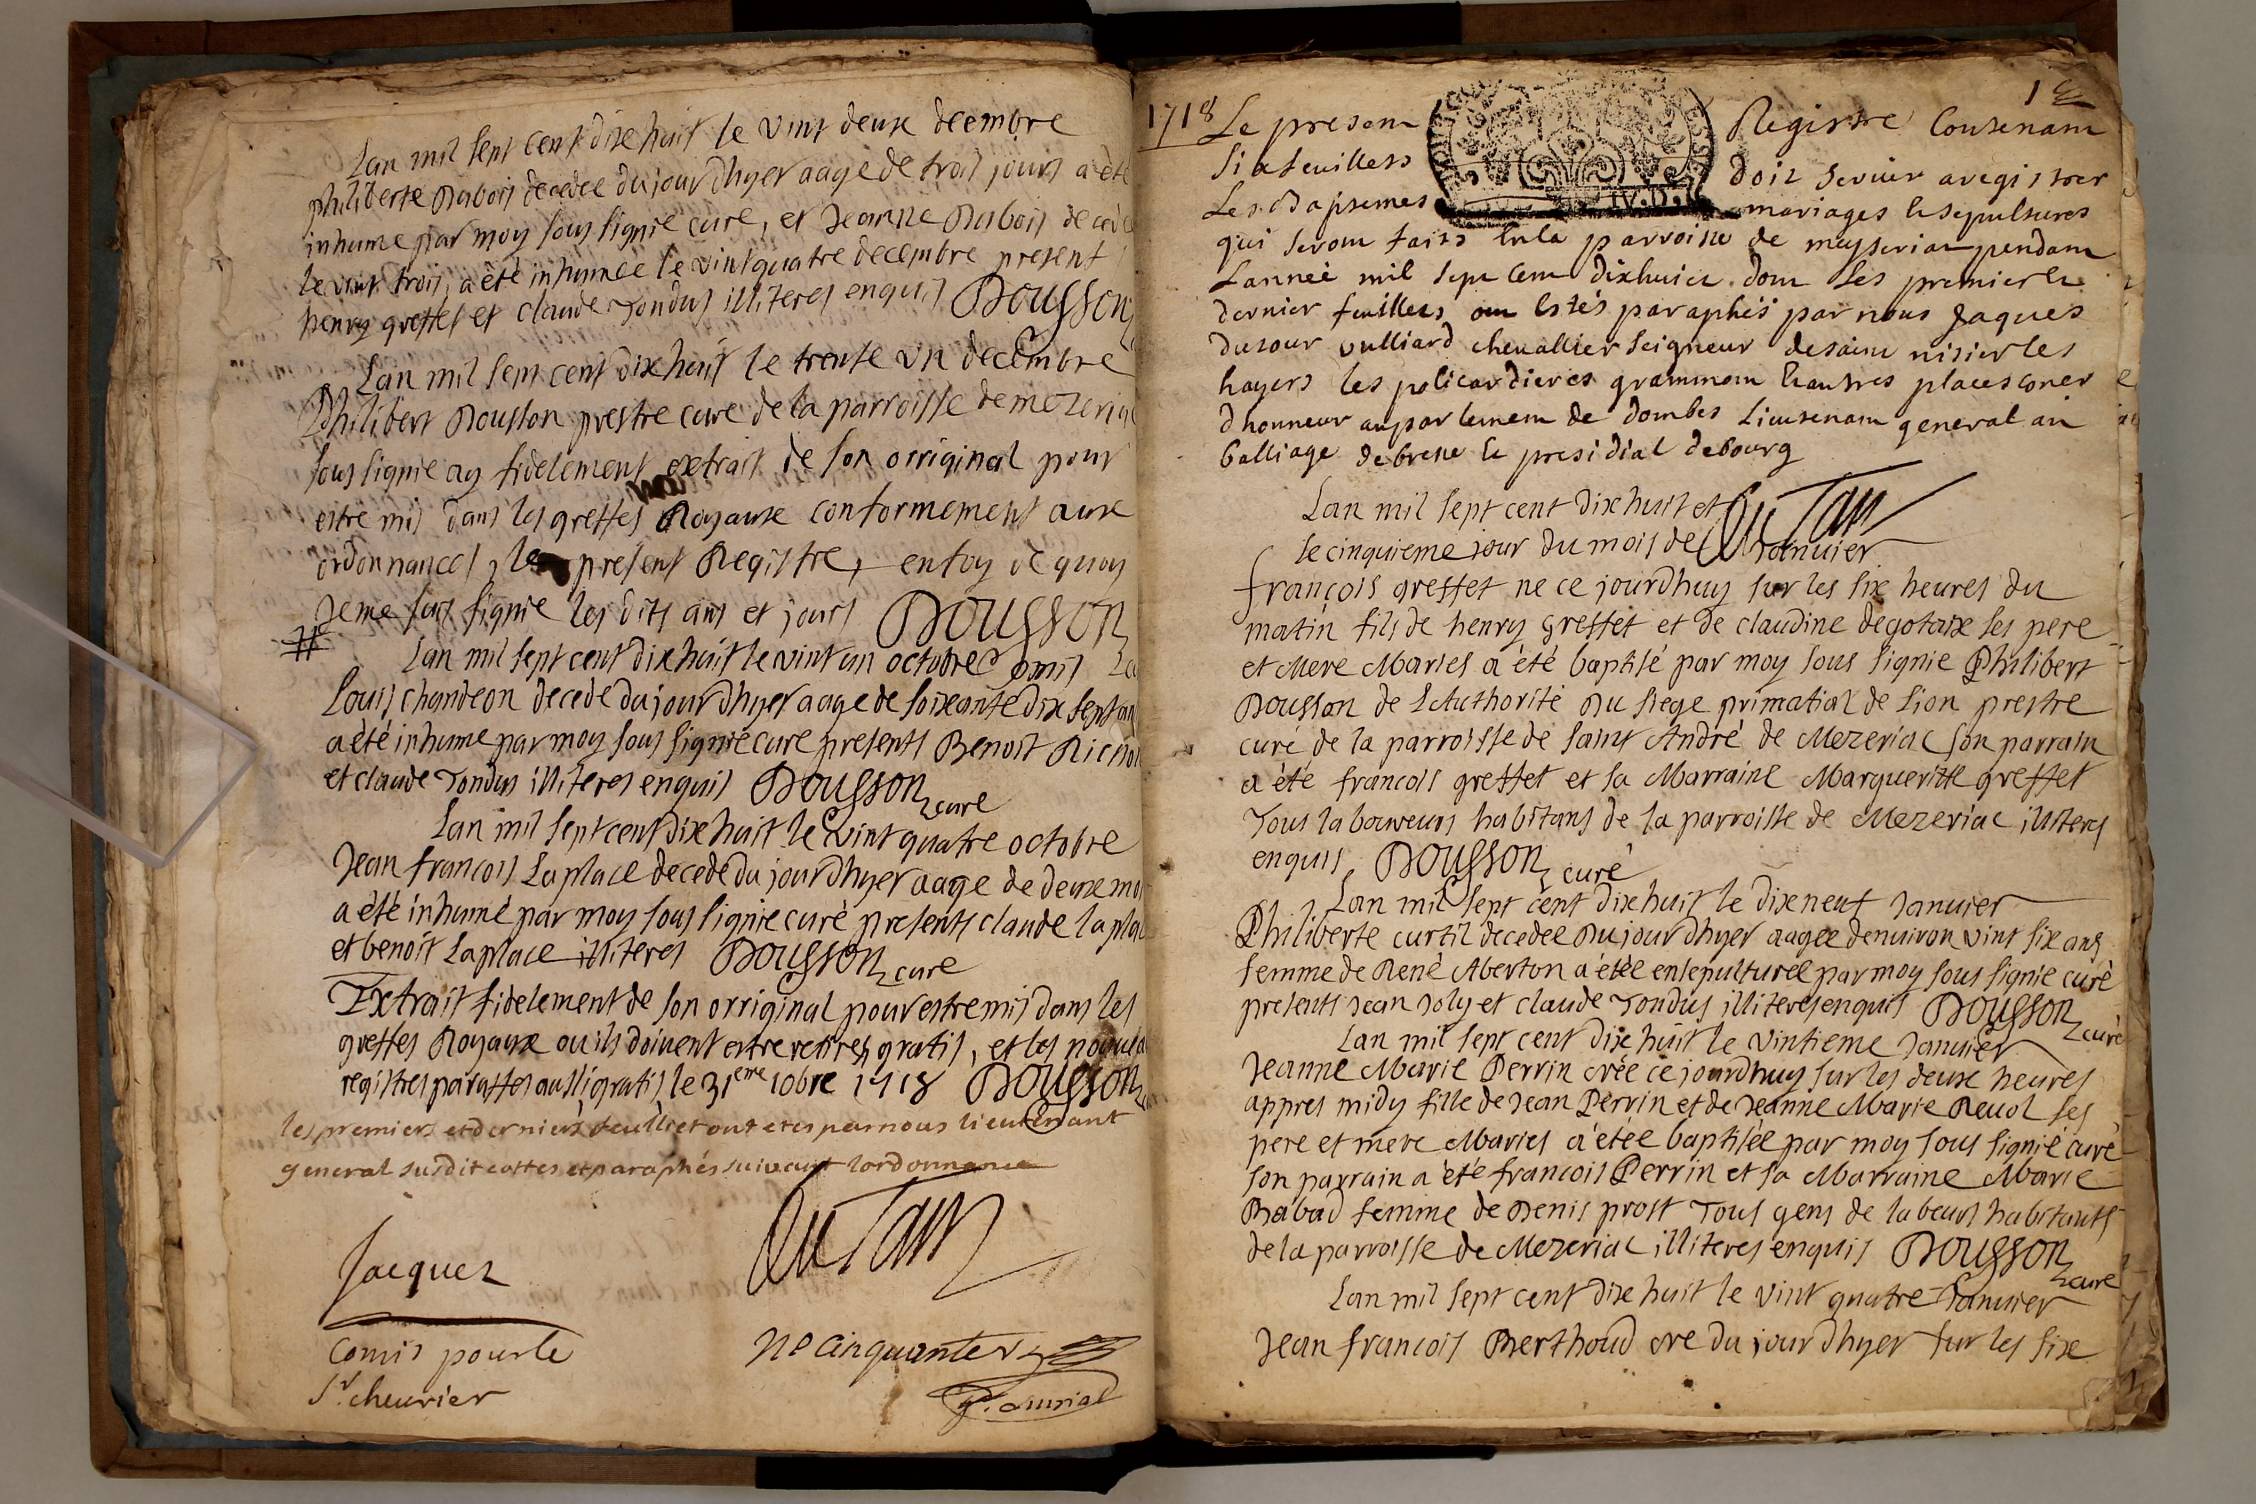 Lan mil sept cent dixe huit le vint deux decembre
philiberte Rabois decedee du jour dhyer aage de trois jours a été
inhume par moy sous signie cure, et Jeanne Rabois decede
le vint trois, a été inhumée le vint quatre decembre present
henry greffet et claude Tondus illiteres enquis Dousson
Lan mil sept cent dixe huit le trente un decembre
Philibert Dousson prestre cure de la parroisse de mezeria
sous signie ay fidelement extrait de son orriginal pour
estre mis dans les greffes Royaux conformement aux
ordonnances, le present Registre, en foy de quoy
Je me suis signie les dits ans et jours Dousson
# Lan mil sept cent dixe huit le vint un octobre omis
Louis chandeon decede du jour dhyer aage de soixante dix sept an
a été inhume par moy sous signié cure presents Benoit Richo
et claude Tondus illiteres enquis Dousson cure
Lan mil sept cent dixe huit le vint quatre octobre
Jean francois Laplace decede du jour dhyer aage de deux mo
a été inhumé par moy sous signie curé presents claude la pla
et benoit Laplace illiteres Dousson cure
Extrait fidelement de son orriginal pour estre mis dans les
greffes Royaux ou ils doivent estre retires gratis, et les
registres paraffes aussi gratis, le 31eme 10bre 1718 Dousson
les premiers et derniers feulliet ont etes par nous lieutenant
general susdit cottes et paraphés suivant lordonnance
Du Tour
Jacquez
Comis pour le
Sr. cheurier
No cinquante
1718 Le present Registre Contenant 1
six feuillets doit servir a registrer
Les Baptemes mariages & sepultures
qui seront faits en la parroisse de meyseriat pendant
Lanneé mil sept cent dixhuict dont Les premier &
dernier feuillets ont estés paraphés par nous Jaques
dutour vulliard chevallier seigneur de saint nisier les
hayers les policardieres grammont & autres places coner
dhonneur au parlement de dombes Lieutenant general au
balliage de bresse & presidial de bourg
Du Tour
Lan mil sept cent dixe huit et
le cinquieme jour du mois de Januier
françois greffet ne ce jourdhuy sur les six heures du
matin fils de henry greffet et de claudine degotaix ses pere
et Mere Maries a été baptisé par moy sous signie Philibert
Dousson de Lauthorité du siege primatial de Lion prestre
curé de la parroisse de saint André de Mezeriac son parrain
a été francois greffet et sa Marraine Marguerite greffet
Tous laboureurs habitans de la parroisse de Mezeriac illiteres
enquis, Dousson curé
Lan mil sept cent dixe huit le dixe neuf Januier
Philiberte curtil decedee du jour dhyer aagee denuiron vint six ans
femme de René Aberton a étée ensepulturee par moy sous signie curé
presents Jean Joly et claude Tondus illiteres enquis Dousson curé
Lan mil sept cent dixe huit le vintieme Januier
Jeanne Marie Perrin crée ce jourdhuy sur les deux heures
appres midy fille de Jean Perrin et de Jeanne Marie Reuol ses
pere et mere Maries a étée baptisée par moy sous signié curé
son parrain a été francois Perrin et sa Marraine Marie
Babad femme de Denis prost Tous gens de labeurs habitants
de la parroisse de Mezeriac illiteres enquis Dousson cure
Lan mil sept cent dixe huit le vint quatre Januier
Jean francois Berthoud cre du jour dhyer sur les sixe